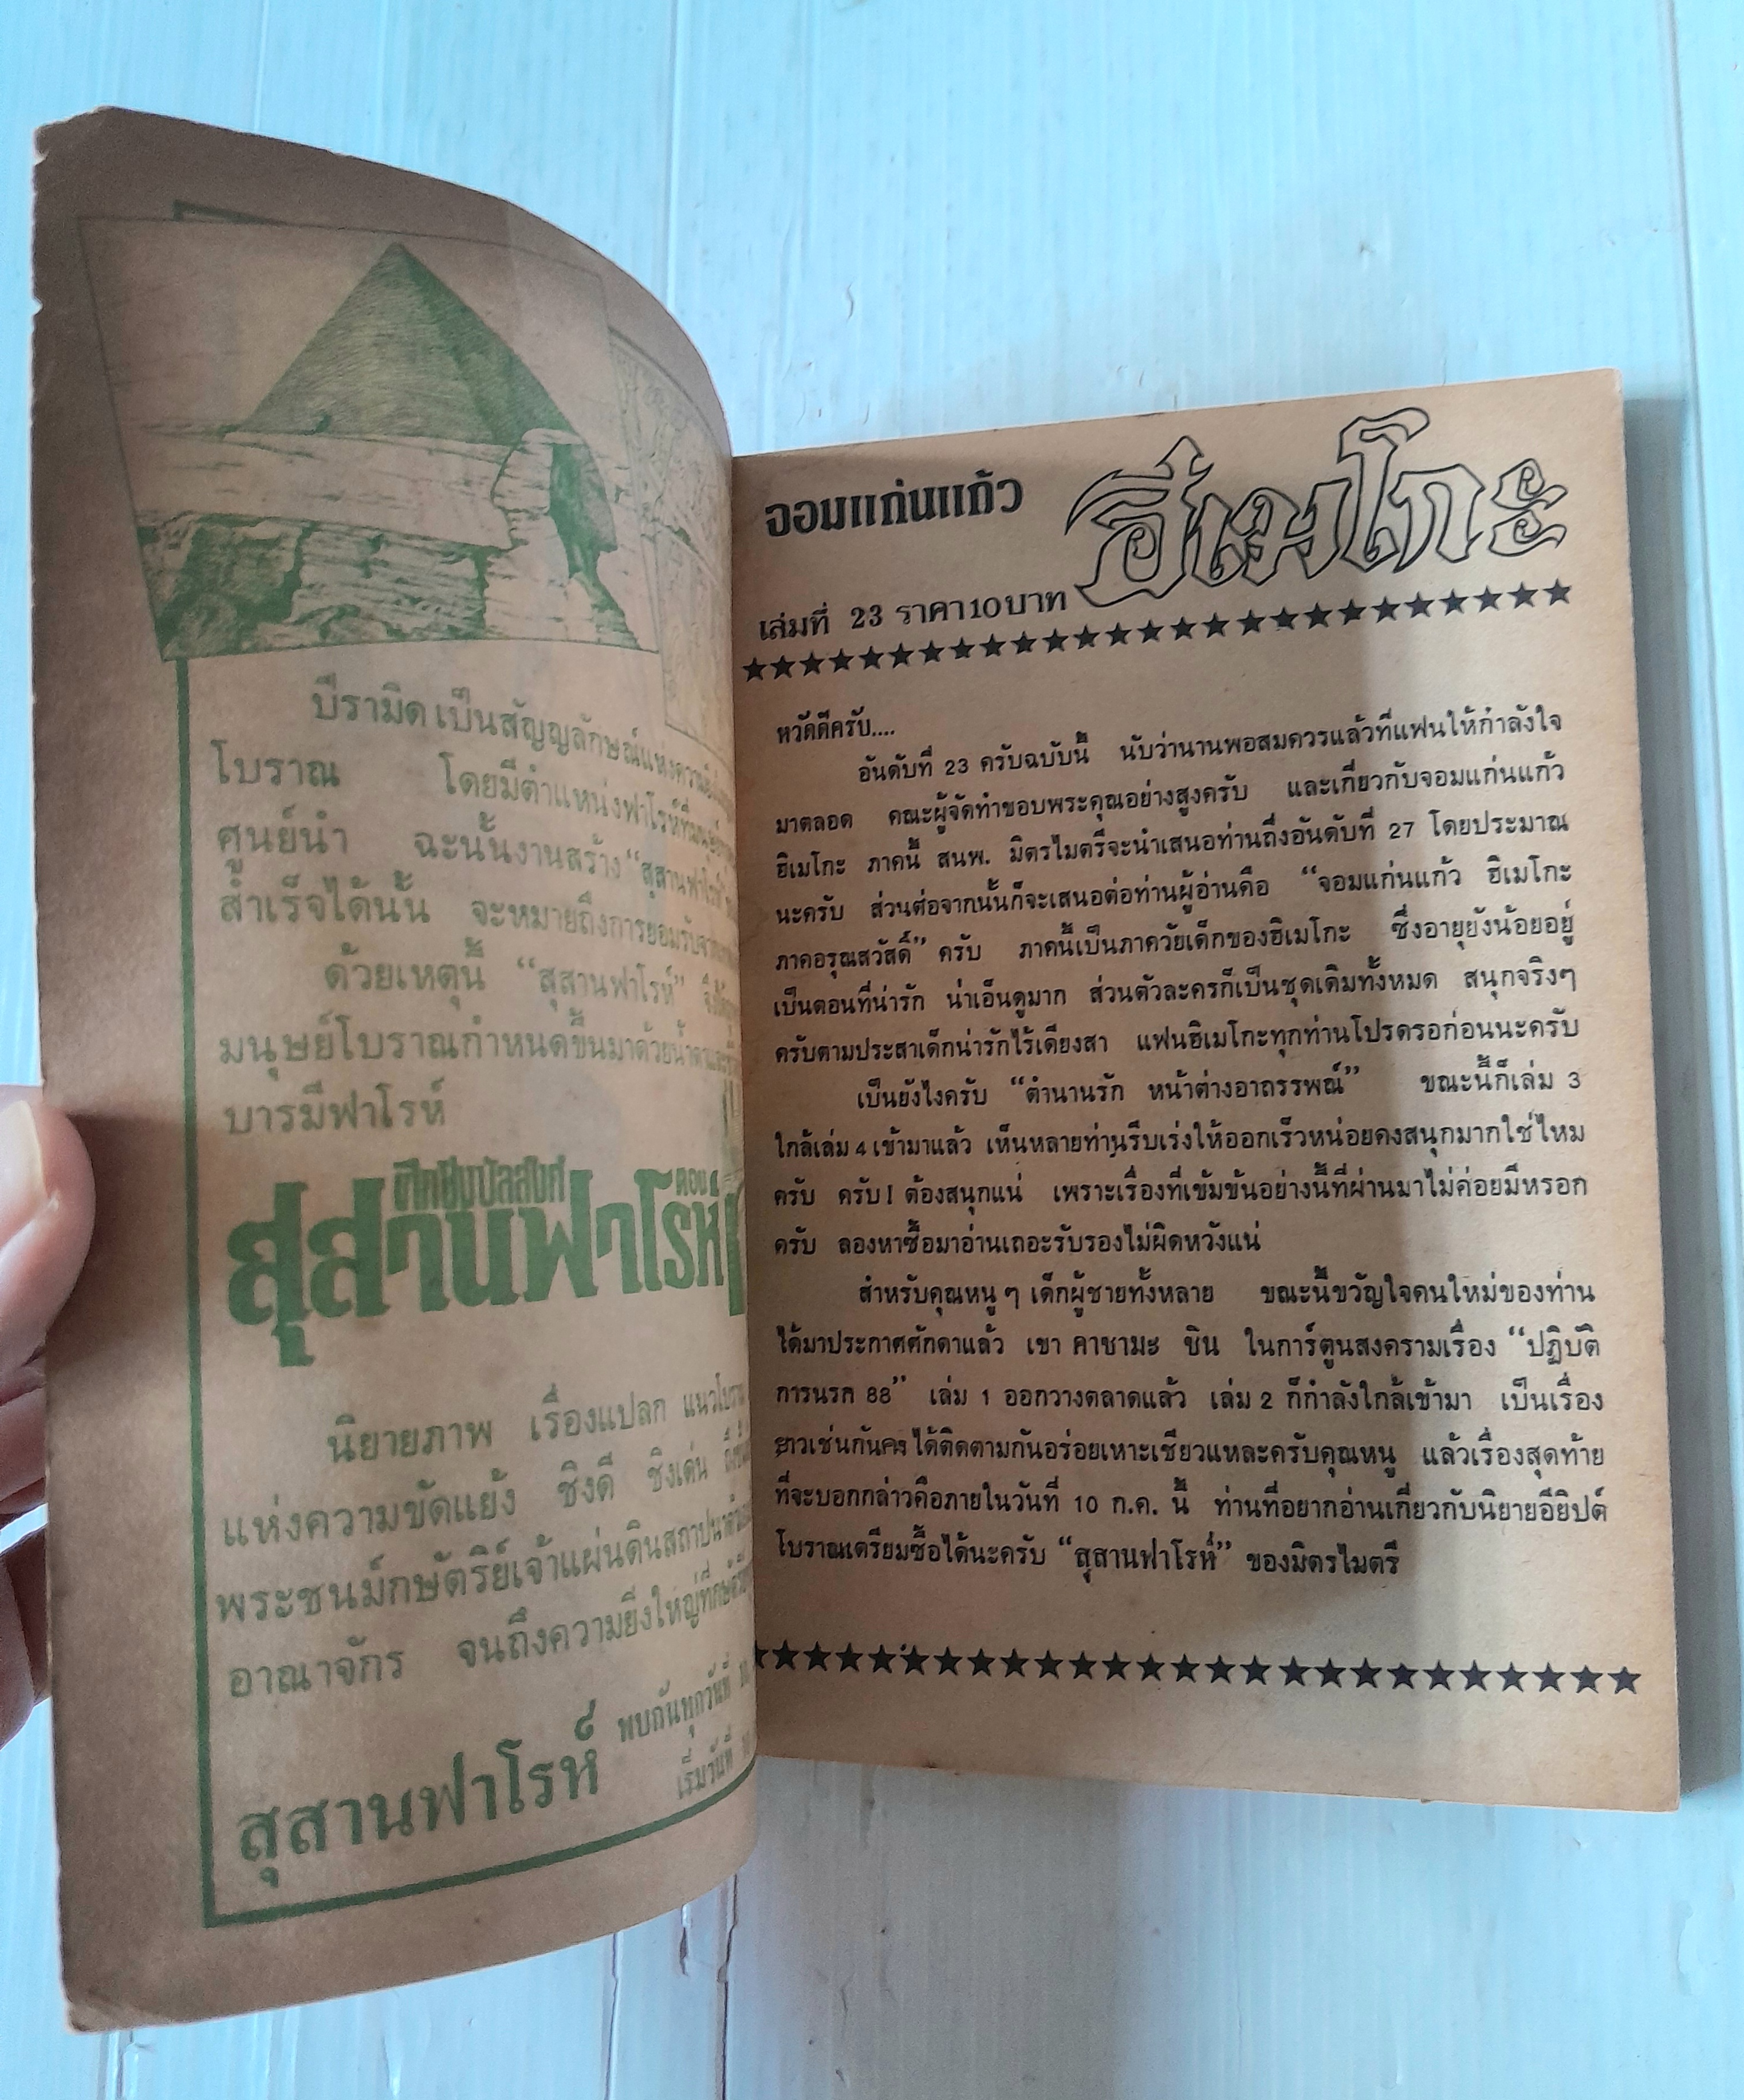 ปิรามิด เป็นสัญญลักษณ์แห่งความ
โบราณ โดยมีตำแหน่งฟาโรห์ที่
ศูนย์นำ ฉะนั้นงานสร้าง "สุสานฟาโรห์"
สำเร็จได้นั้น จะหมายถึงการยอมรับ
ด้วยเหตุนี้ "สุสานฟาโรห์"
มนุษย์โบราณกำหนดขึ้นมาด้วยน้ำตาและ
บารมีฟาโรห์
ตอน
สุสานฟาโรห์
นิยายภาพ เรื่องแปลก แนวโบราณ
แห่งความขัดแย้ง ชิงดี ชิงเด่น
พระชนม์กษัตริย์เจ้าแผ่นดินสถาปนา
อาณาจักร จนถึงความยิ่งใหญ่ที่
สุสานฟาโรห์ พบกันทุกวันที่
เริ่มวันที่
จอมแก่นแก้ว ฮิเมโกะ
เล่มที่ 23 ราคา 10 บาท
หวัดดีครับ....
อันดับที่ 23 ครับฉบับนี้ นับว่านานพอสมควรแล้วที่แฟนให้กำลังใจ
มาตลอด คณะผู้จัดทำขอบพระคุณอย่างสูงครับ และเกี่ยวกับจอมแก่นแก้ว
ฮิเมโกะ ภาคนี้ สนพ. มิตรไมตรีจะนำเสนอท่านถึงอันดับที่ 27 โดยประมาณ
นะครับ ส่วนต่อจากนั้นก็จะเสนอต่อท่านผู้อ่านคือ "จอมแก่นแก้ว ฮิเมโกะ
ภาคอรุณสวัสดิ์" ครับ ภาคนี้เป็นภาควัยเด็กของฮิเมโกะ ซึ่งอายุยังน้อยอยู่
เป็นตอนที่น่ารัก น่าเอ็นดูมาก ส่วนตัวละครก็เป็นชุดเดิมทั้งหมด สนุกจริงๆ
ครับตามประสาเด็กน่ารักไร้เดียงสา แฟนฮิเมโกะทุกท่านโปรดรอก่อนนะครับ
เป็นยังไงครับ "ตำนานรัก หน้าต่างอาถรรพณ์" ขณะนี้ก็เล่ม 3
ใกล้เล่ม 4 เข้ามาแล้ว เห็นหลายท่านรีบเร่งให้ออกเร็วหน่อยคงสนุกมากใช่ไหม
ครับ ครับ! ต้องสนุกแน่ เพราะเรื่องที่เข้มข้นอย่างนี้ที่ผ่านมาไม่ค่อยมีหรอก
ครับ ลองหาซื้อมาอ่านเถอะรับรองไม่ผิดหวังแน่
สำหรับคุณหนู ๆ เด็กผู้ชายทั้งหลาย ขณะนี้ขวัญใจคนใหม่ของท่าน
ได้มาประกาศศักดาแล้ว เขา คาซามะ ชิน ในการ์ตูนสงครามเรื่อง "ปฏิบัติ
การนรก 88" เล่ม 1 ออกวางตลาดแล้ว เล่ม 2 ก็กำลังใกล้เข้ามา เป็นเรื่อง
ยาวเช่นกันคง ได้ติดตามกันอร่อยเหาะเชียวแหละครับคุณหนู แล้วเรื่องสุดท้าย
ที่จะบอกกล่าวคือภายในวันที่ 10 ก.ค. นี้ ท่านที่อยากอ่านเกี่ยวกับนิยายอียิปต์
โบราณเตรียมซื้อได้นะครับ "สุสานฟาโรห์" ของมิตรไมตรี